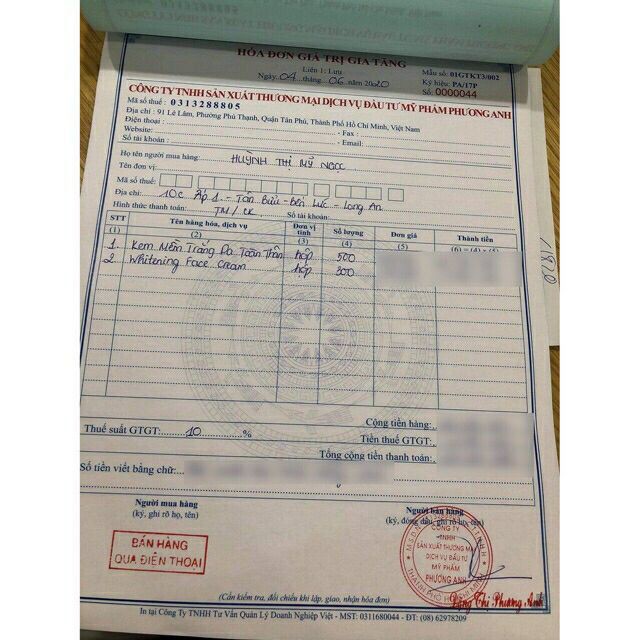 HÓA ĐƠN GIÁ TRỊ GIA TĂNG
Liên 1: Lưu
Ngày 04 tháng 06 năm 2020
Mẫu số: 01GTKT3/002
Ký hiệu: PA/17P
Số: 0000044
CÔNG TY TNHH SẢN XUẤT THƯƠNG MẠI DỊCH VỤ ĐẦU TƯ MỸ PHẨM PHƯƠNG ANH
Mã số thuế: 0313288805
Địa chỉ: 91 Lê Lâm, Phường Phú Thạnh, Quận Tân Phú, Thành Phố Hồ Chí Minh, Việt Nam
Điện thoại: - Fax:
Website: - Email:
Số tài khoản:
Họ tên người mua hàng: HUỲNH THỊ MỸ NGỌC
Tên đơn vị:
Mã số thuế:
Địa chỉ: 10C Ấp 1 - Tân Bửu - Bến Lức - Long An
Hình thức thanh toán: TM/CK Số tài khoản:
STT Tên hàng hóa, dịch vụ Đơn vị tính Số lượng Đơn giá Thành tiền
(1) (2) (3) (4) (5) (6) = (4) x (5)
1 Kem Mềm Trắng Da Toàn Thân hộp 500
2 Whitening Face Cream hộp 300
Cộng tiền hàng:
Thuế suất GTGT: 10 % Tiền thuế GTGT:
Tổng cộng tiền thanh toán:
Số tiền viết bằng chữ:
Người mua hàng Người bán hàng
(ký, ghi rõ họ, tên) (ký, đóng dấu, ghi rõ họ, tên)
BÁN HÀNG
QUA ĐIỆN THOẠI
CÔNG TY
TNHH
SẢN XUẤT THƯƠNG MẠI
DỊCH VỤ ĐẦU TƯ
MỸ PHẨM
PHƯƠNG ANH
Đặng Thị Phương Anh
(Cần kiểm tra, đối chiếu khi lập, giao, nhận hóa đơn)
In tại Công Ty TNHH Tư Vấn Quản Lý Doanh Nghiệp Việt - MST: 0311680044 - ĐT: (08) 62978209